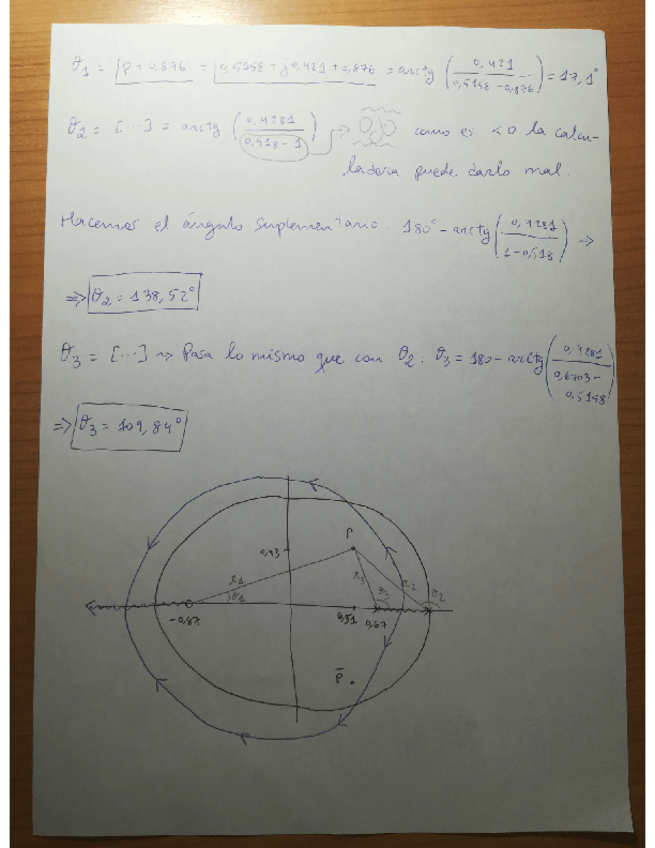 θ₁ = ∠p + 0,876 = ∠0,5158 + j0,421 + 0,876 = arctg (0,421 / 0,5158 - 0,876) = 17,1°
θ₂ = [...] = arctg (0,4281 / 0,513 - 1) → Ojo como es <0 la calcu-
ladora puede darlo mal.
Hacemos el ángulo suplementario. 180° - arctg (0,4281 / 1 - 0,513) ⇒
⇒ θ₂ = 138,52°
θ₃ = [...] ⇒ Pasa lo mismo que con θ₂: θ₃ = 180 - arctg (0,4281 / 0,6703 - 0,5158)
⇒ θ₃ = 109,84°
P
0,43
R1
θ1
R3
θ3
R2
θ2
-0,87
0,51
0,67
P̄